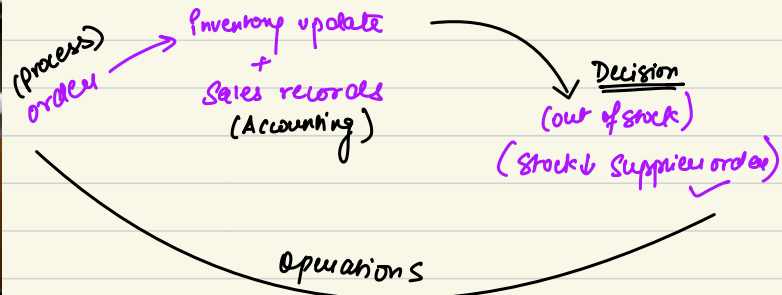 (Process)
order
Inventory update
+
Sales records
(Accounting)
Decision
(out of stock)
(Stock↓ Supplier order)
Operations